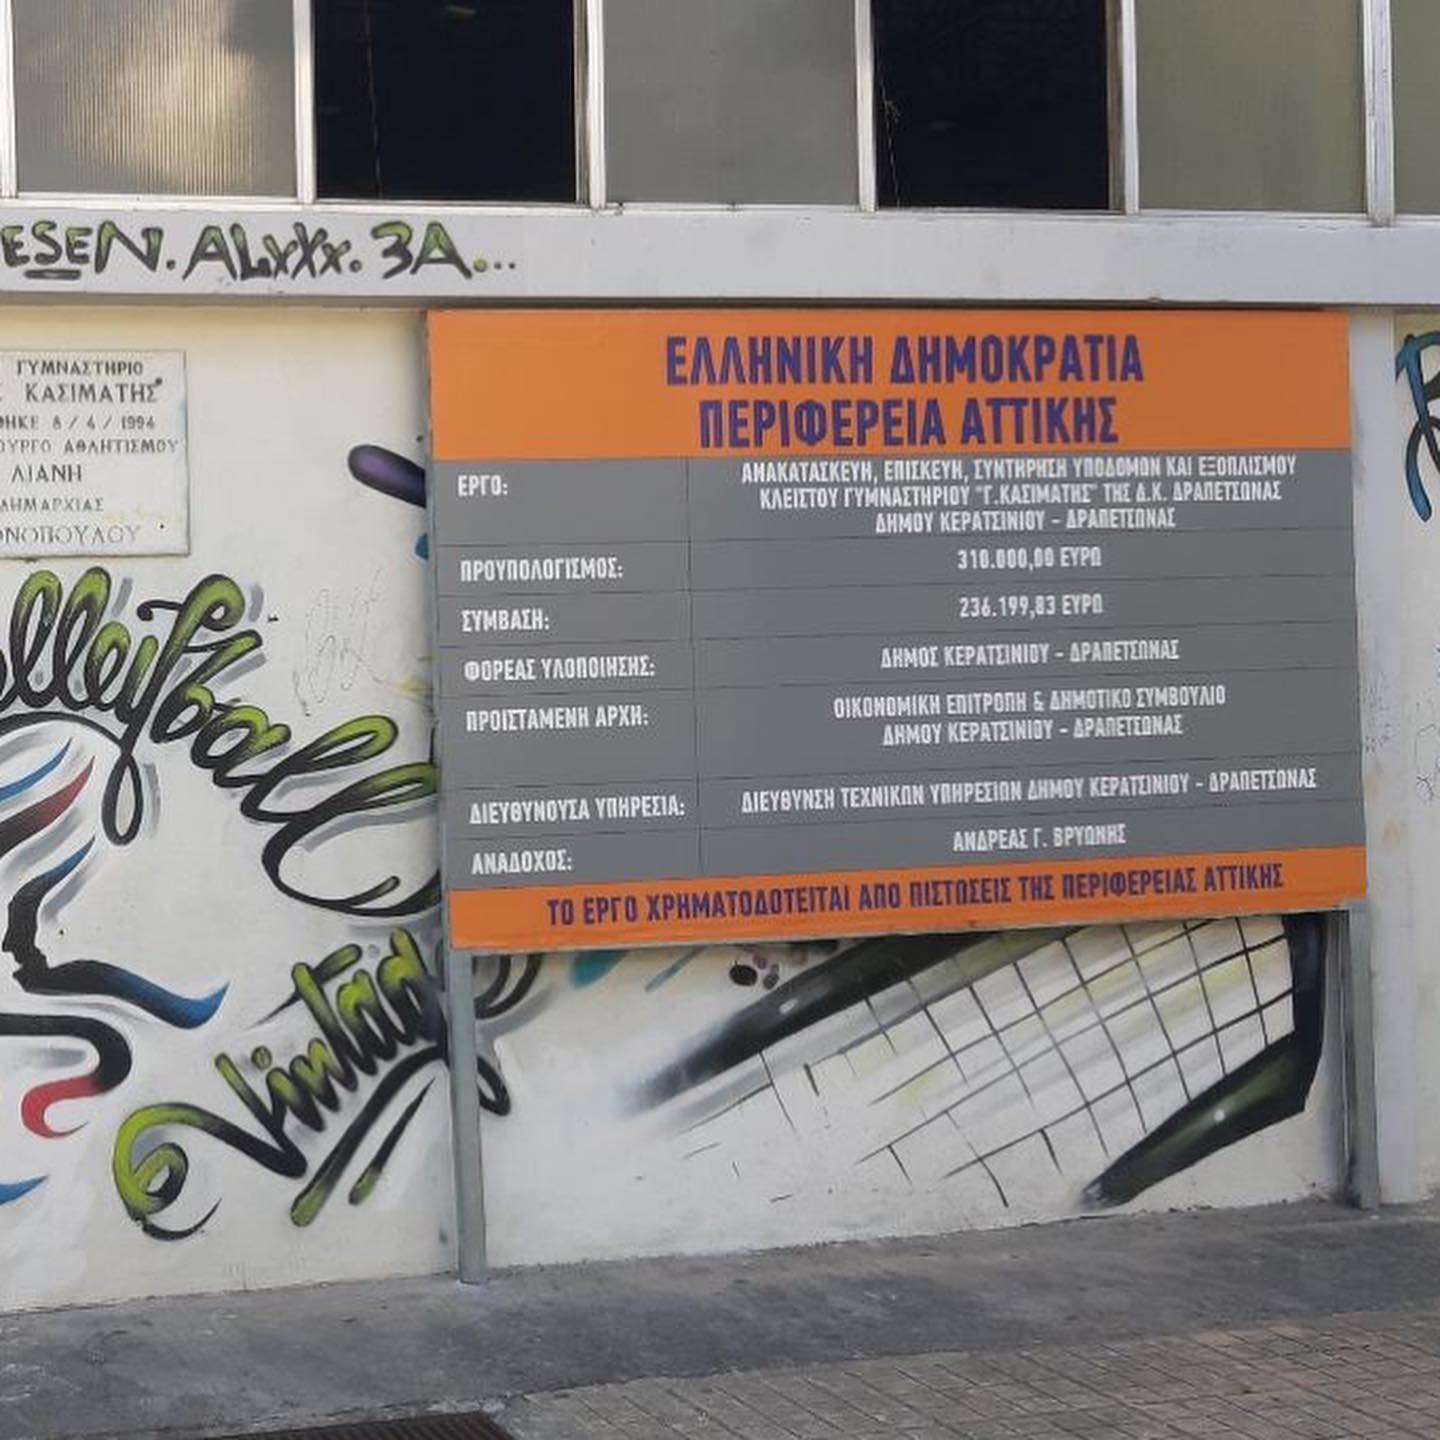 ESEN. ALxXx. 3A...
ΓΥΜΝΑΣΤΗΡΙΟ
ΚΑΣΙΜΑΤΗΣ
ΘΗΚΕ 8/4/1994
ΟΥΡΓΟ ΑΘΛΗΤΙΣΜΟΥ
ΛΙΑΝΗ
ΔΗΜΑΡΧΙΑΣ
ΝΟΠΟΥΛΟΥ
ΕΛΛΗΝΙΚΗ ΔΗΜΟΚΡΑΤΙΑ
ΠΕΡΙΦΕΡΕΙΑ ΑΤΤΙΚΗΣ
ΕΡΓΟ: ΑΝΑΚΑΤΑΣΚΕΥΗ, ΕΠΙΣΚΕΥΗ, ΣΥΝΤΗΡΗΣΗ ΥΠΟΔΟΜΩΝ ΚΑΙ ΕΞΟΠΛΙΣΜΟΥ
ΚΛΕΙΣΤΟΥ ΓΥΜΝΑΣΤΗΡΙΟΥ "Γ.ΚΑΣΙΜΑΤΗΣ" ΤΗΣ Δ.Κ. ΔΡΑΠΕΤΣΩΝΑΣ
ΔΗΜΟΥ ΚΕΡΑΤΣΙΝΙΟΥ - ΔΡΑΠΕΤΣΩΝΑΣ
ΠΡΟΥΠΟΛΟΓΙΣΜΟΣ: 310.000,00 ΕΥΡΩ
ΣΥΜΒΑΣΗ: 236.199,83 ΕΥΡΩ
ΦΟΡΕΑΣ ΥΛΟΠΟΙΗΣΗΣ: ΔΗΜΟΣ ΚΕΡΑΤΣΙΝΙΟΥ - ΔΡΑΠΕΤΣΩΝΑΣ
ΠΡΟΙΣΤΑΜΕΝΗ ΑΡΧΗ: ΟΙΚΟΝΟΜΙΚΗ ΕΠΙΤΡΟΠΗ & ΔΗΜΟΤΙΚΟ ΣΥΜΒΟΥΛΙΟ
ΔΗΜΟΥ ΚΕΡΑΤΣΙΝΙΟΥ - ΔΡΑΠΕΤΣΩΝΑΣ
ΔΙΕΥΘΥΝΟΥΣΑ ΥΠΗΡΕΣΙΑ: ΔΙΕΥΘΥΝΣΗ ΤΕΧΝΙΚΩΝ ΥΠΗΡΕΣΙΩΝ ΔΗΜΟΥ ΚΕΡΑΤΣΙΝΙΟΥ - ΔΡΑΠΕΤΣΩΝΑΣ
ΑΝΑΔΟΧΟΣ: ΑΝΔΡΕΑΣ Γ. ΒΡΥΩΝΗΣ
ΤΟ ΕΡΓΟ ΧΡΗΜΑΤΟΔΟΤΕΙΤΑΙ ΑΠΟ ΠΙΣΤΩΣΕΙΣ ΤΗΣ ΠΕΡΙΦΕΡΕΙΑΣ ΑΤΤΙΚΗΣ
olleyball
Vintag